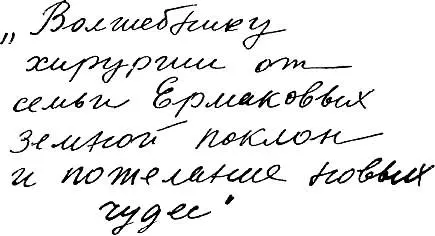 „Волшебнику
хирургии от
семьи Ермаковых
земной поклон
и пожелание новых
чудес"